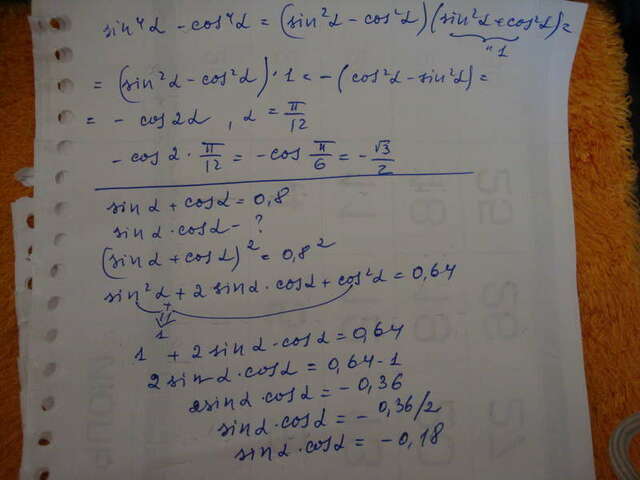 sin⁴α - cos⁴α = (sin²α - cos²α)(sin²α + cos²α) =
" 1
= (sin²α - cos²α) · 1 = -(cos²α - sin²α) =
= - cos 2α , α = π/12
- cos 2 · π/12 = - cos π/6 = - √3/2
sin α + cos α = 0,8
sin α · cos α - ?
(sin α + cos α)² = 0,8²
sin²α + 2 sin α · cos α + cos²α = 0,64
1
1 + 2 sin α · cos α = 0,64
2 sin α · cos α = 0,64 - 1
2 sin α · cos α = - 0,36
sin α · cos α = - 0,36/2
sin α · cos α = - 0,18